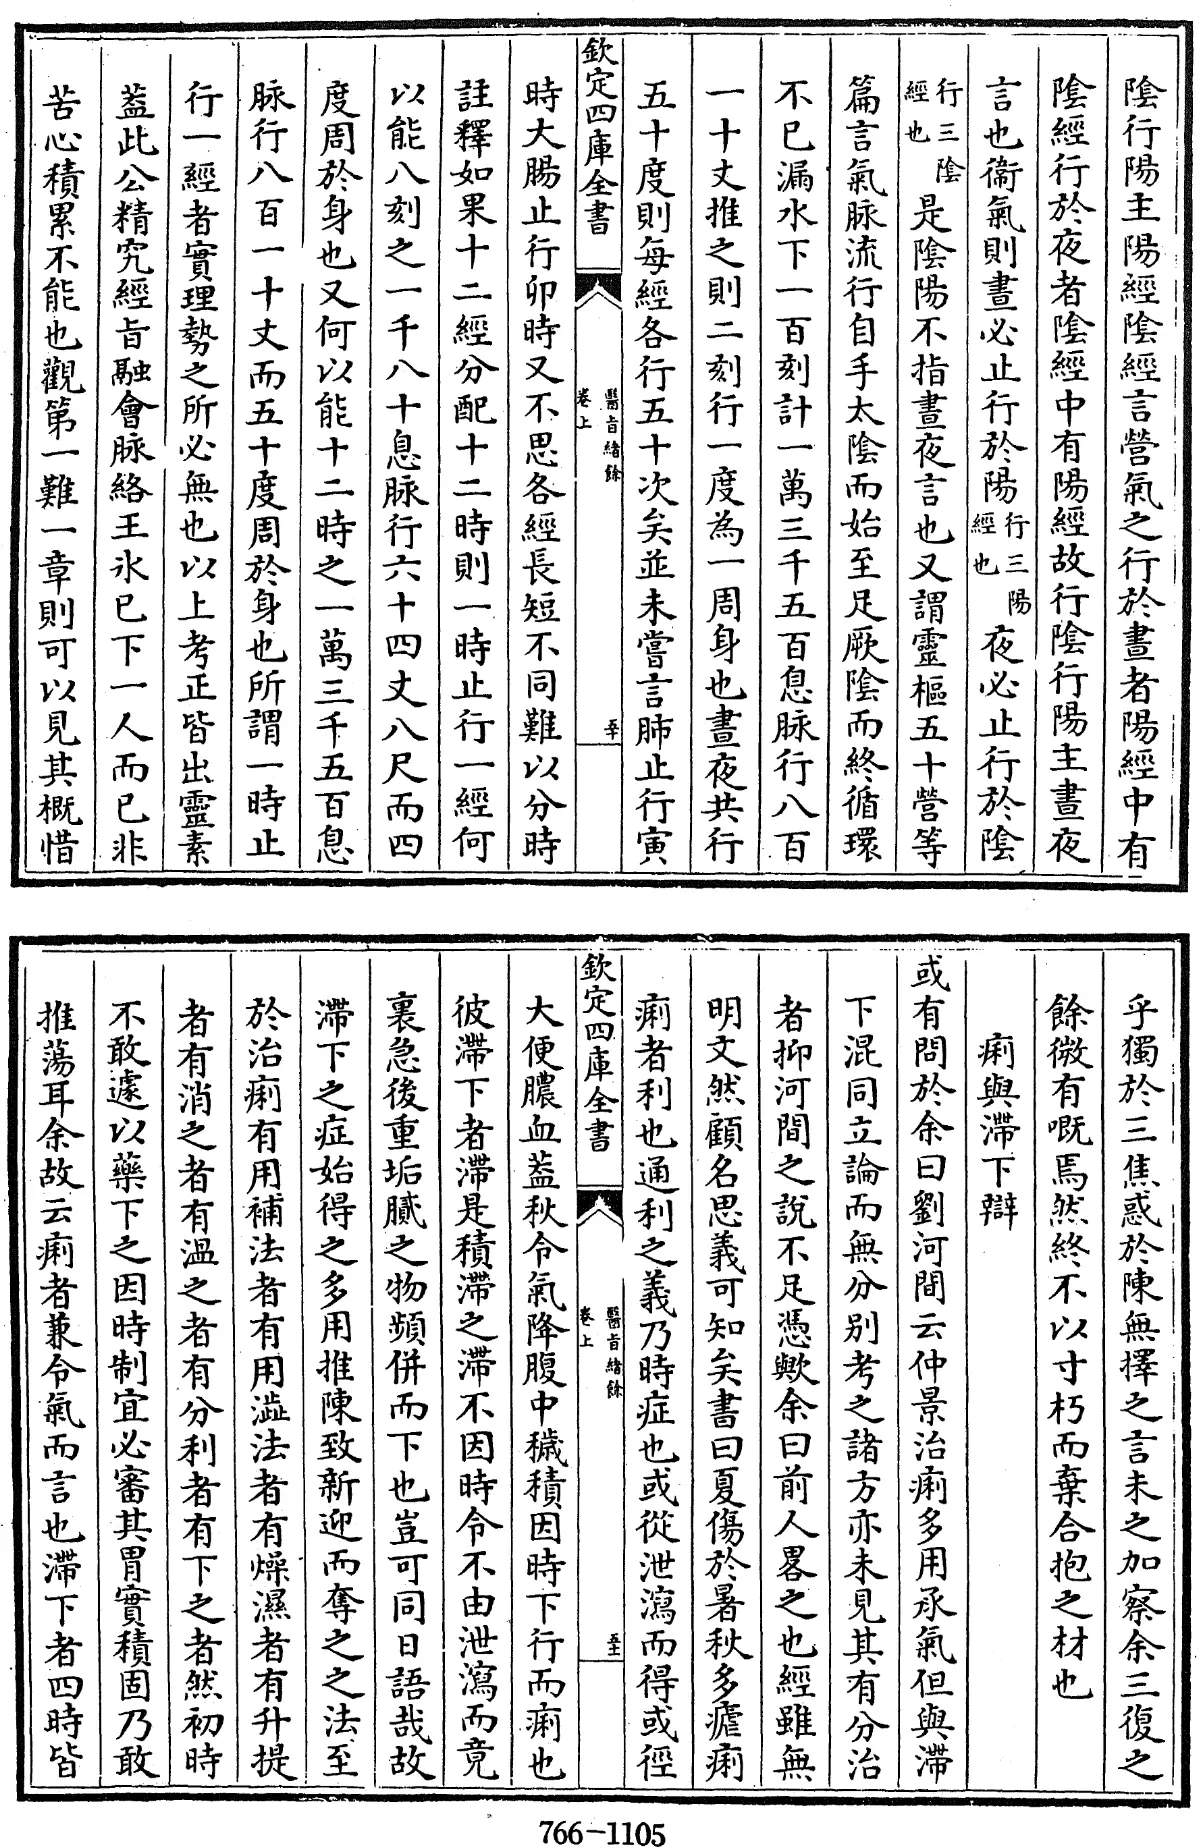 陰行陽主陽經陰經言營氣之行於晝者陽經中有
陰經行於夜者陰經中有陽經故行陰行陽主晝夜
言也衛氣則晝必止行於陽行三陽經也夜必止行於陰
行三陰經也是陰陽不指晝夜言也又謂靈樞五十營等
篇言氣脉流行自手太陰而始至足厥陰而終循環
不已漏水下一百刻計一萬三千五百息脉行八百
一十丈推之則二刻行一度為一周身也晝夜共行
五十度則每經各行五十次矣並未嘗言肺止行寅
欽定四庫全書
醫旨緒餘
卷上
五十
時大腸止行卯時又不思各經長短不同難以分時
註釋如果十二經分配十二時則一時止行一經何
以能八刻之一千八十息脉行六十四丈八尺而四
度周於身也又何以能十二時之一萬三千五百息
脉行八百一十丈而五十度周於身也所謂一時止
行一經者實理勢之所必無也以上考正皆出靈素
葢此公精究經旨融會脉絡王氷已下一人而已非
苦心積累不能也觀第一難一章則可以見其概惜
乎獨於三焦惑於陳無擇之言未之加察余三復之
餘微有嘅焉然終不以寸朽而棄合抱之材也
痢與滯下辯
或有問於余曰劉河間云仲景治痢多用承氣但與滯
下混同立論而無分別考之諸方亦未見其有分治
者抑河間之說不足憑歟余曰前人畧之也經雖無
明文然顧名思義可知矣書曰夏傷於暑秋多瘧痢
痢者利也通利之義乃時症也或從泄瀉而得或徑
欽定四庫全書
醫旨緒餘
卷上
五十一
大便膿血葢秋令氣降腹中穢積因時下行而痢也
彼滯下者滯是積滯之滯不因時令不由泄瀉而竟
裏急後重垢膩之物頻併而下也豈可同日語哉故
滯下之症始得之多用推陳致新迎而奪之之法至
於治痢有用補法者有用澁法者有燥濕者有升提
者有消之者有溫之者有分利者有下之者然初時
不敢遽以藥下之因時制宜必審其胃實積固乃敢
推蕩耳余故云痢者兼令氣而言也滯下者四時皆
766-1105